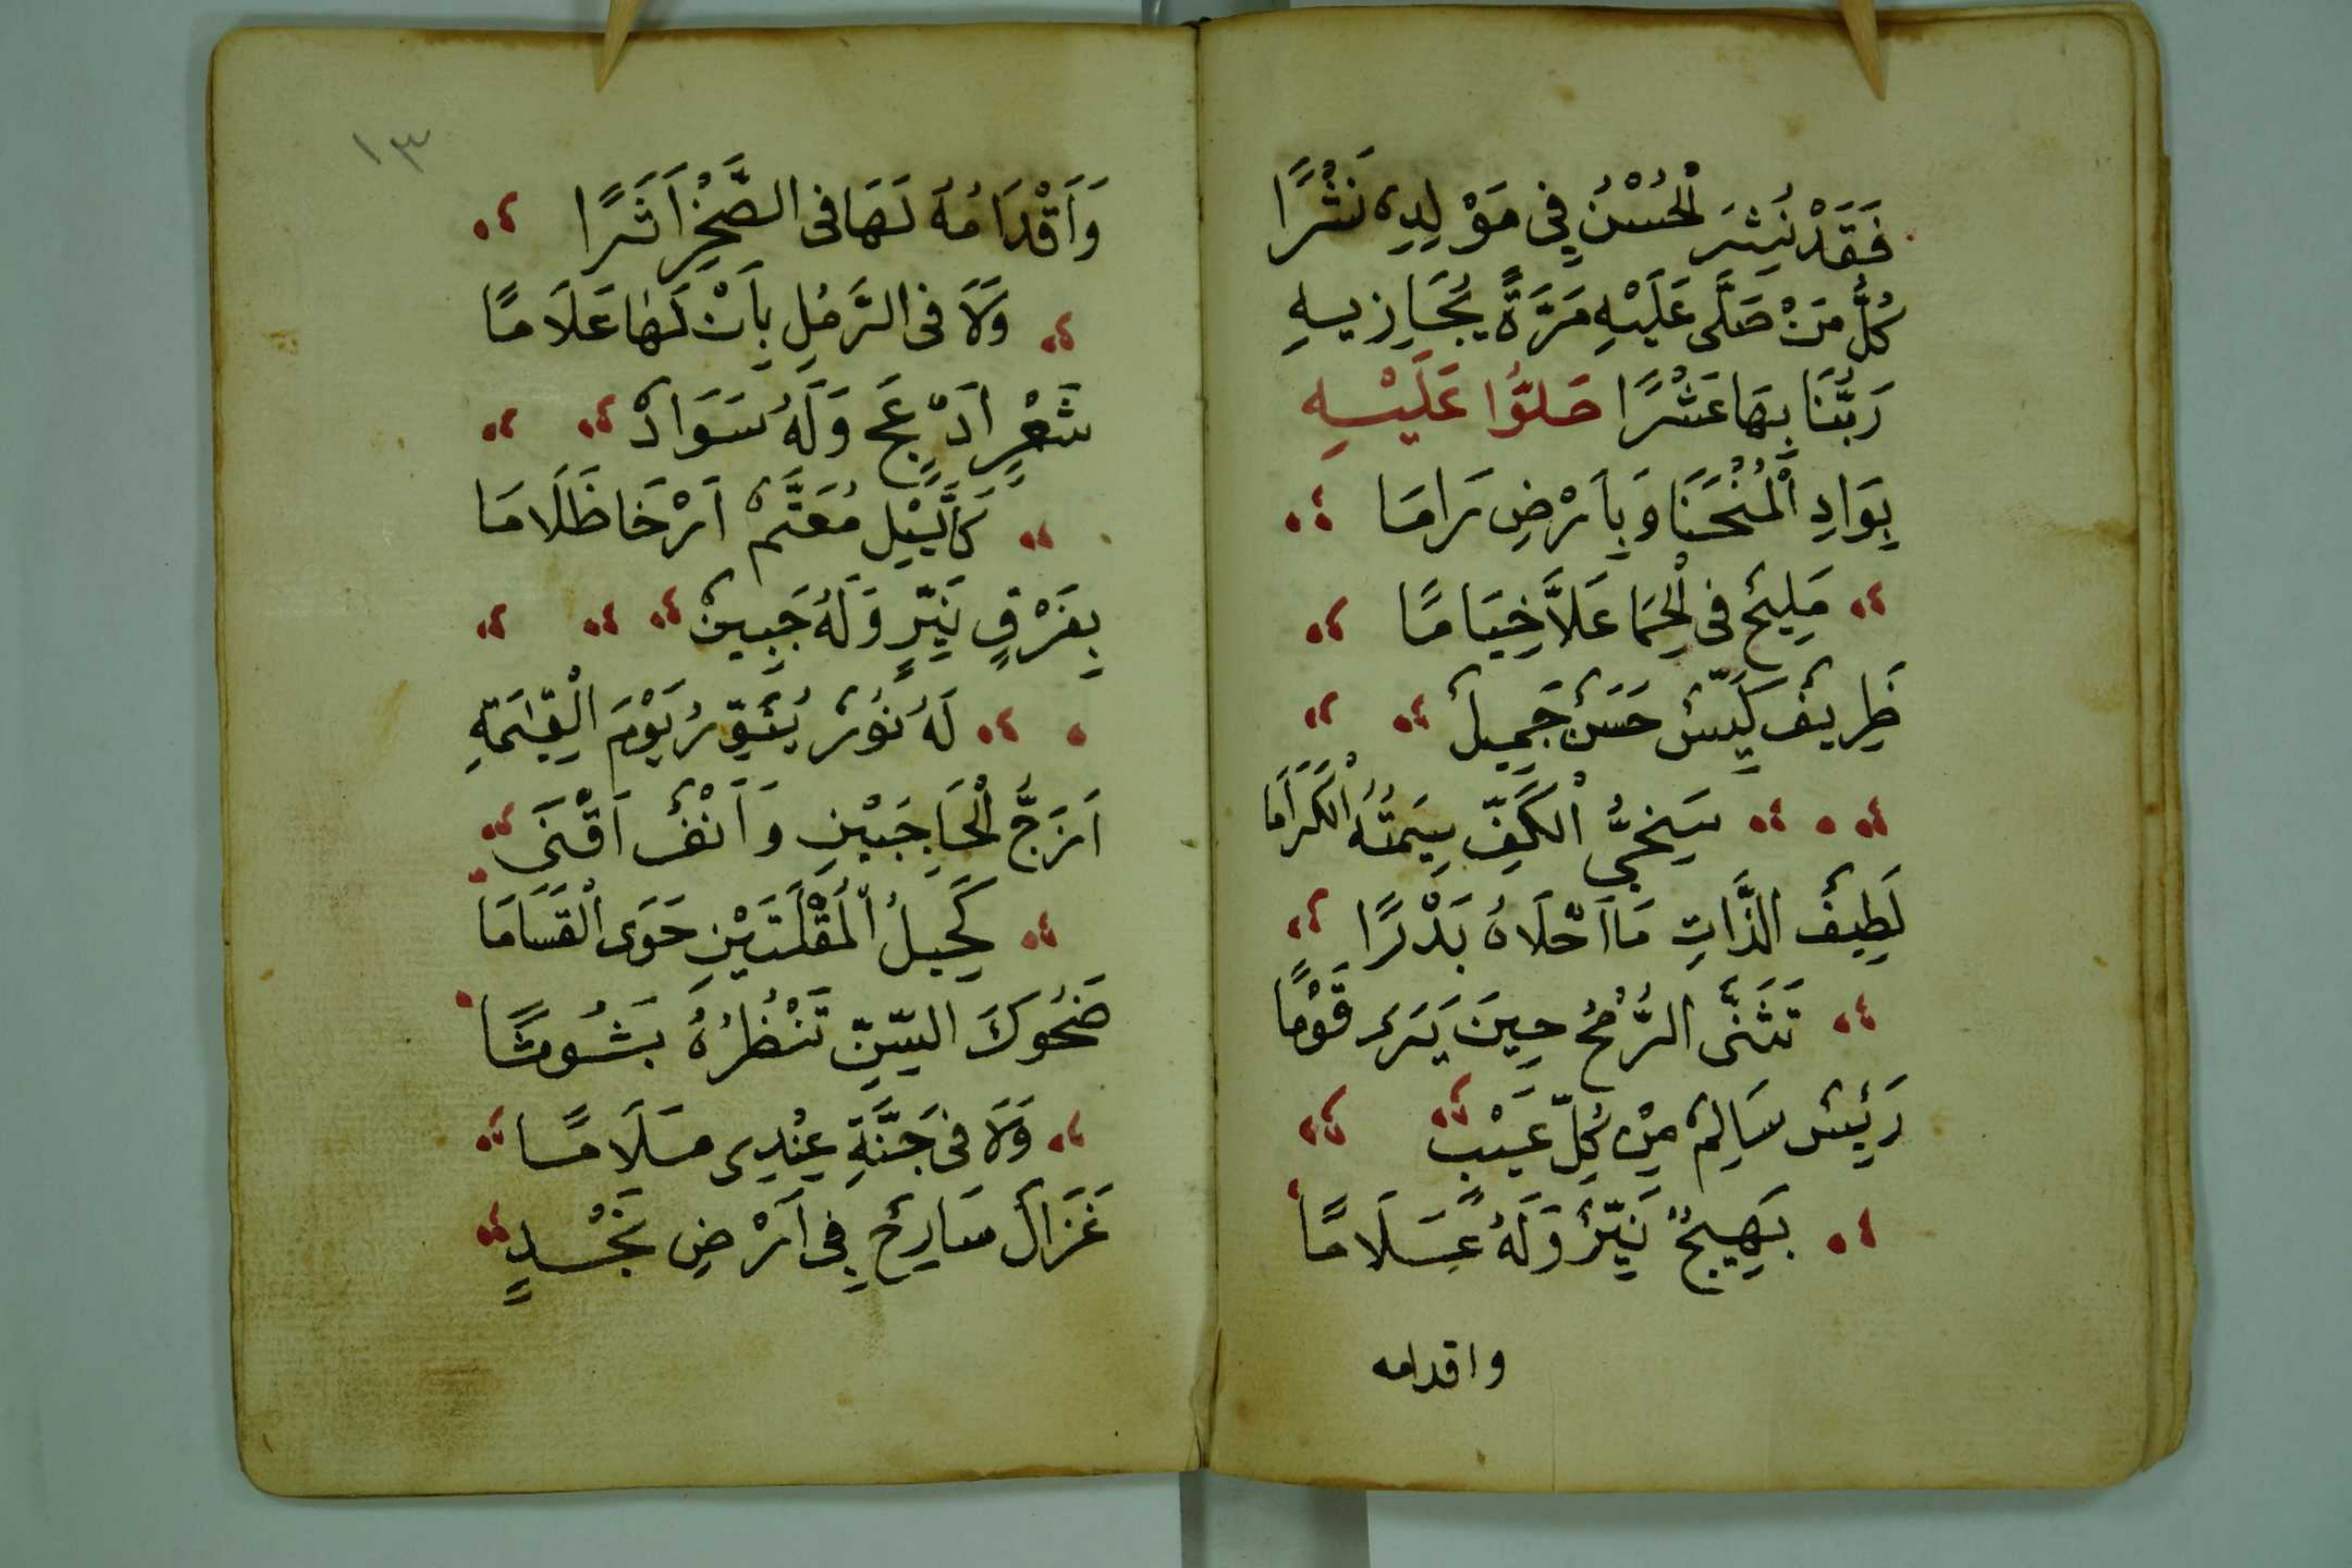 فَقَدْ نُشِرَ الْحُسْنُ فِي مَوْلِدِهِ نَشْرًا
كُلُّ مَنْ صَلَّى عَلَيْهِ مَرَّةً يُجَازِيهِ
رَبُّنَا بِهَا عَشْرًا صَلُّوا عَلَيْهِ
بِوَادِ الْمُنْحَنَا وَبِاَرْضِ رَامَا
مَلِيحٌ فِى الْحِمَا عَلَّا خِيَامًا
ظَرِيفٌ كَيِّسٌ حَسَنٌ جَمِيلٌ
سَخِيُّ الْكَفِّ سِيمَتُهُ الْكَرَامَا
لَطِيفُ الذَّاتِ مَا اَحْلَاهُ بَدْرًا
تَثَنَّى الرُّمْحُ حِينَ يَرَى قَوْمًا
رَئِيسٌ سَالِمٌ مِنْ كُلِّ عَيْبٍ
بَهِيجٌ نَيِّرٌ وَلَهُ عَسَلَامًا
واقدامه
١٣
وَاَقْدَامُهُ لَهَا فِى الصَّخْرِ اَثَرًا
وَلَا فِى الرَّمْلِ بِاَنْ لَهَا عَلَامًا
شَعْرٍ اَدْعَجٍ وَلَهُ سَوَادٌ
كَالَّيْلِ مُعَتَّمٌ اَرْخَا ظَلَامَا
بِفَرْقٍ نَيِّرٍ وَلَهُ جَبِينٌ
لَهُ نُورٌ يُنَوِّرُ يَوْمَ الْقِيٰمَةِ
اَزَجُّ الْحَاجِبَيْنِ وَاَنْفٌ اَقْنَى
كَحِيلُ الْمُقْلَتَيْنِ حَوَى الْقَسَامَا
ضَحُوكَ السِّنِّ تَنْظُرُهُ بَشُوشًا
وَلَا فِى جَنَّةِ عِنْدِى مَسَلَامًا
غَزَالٌ سَارِحٌ فِى اَرْضِ نَجْدٍ